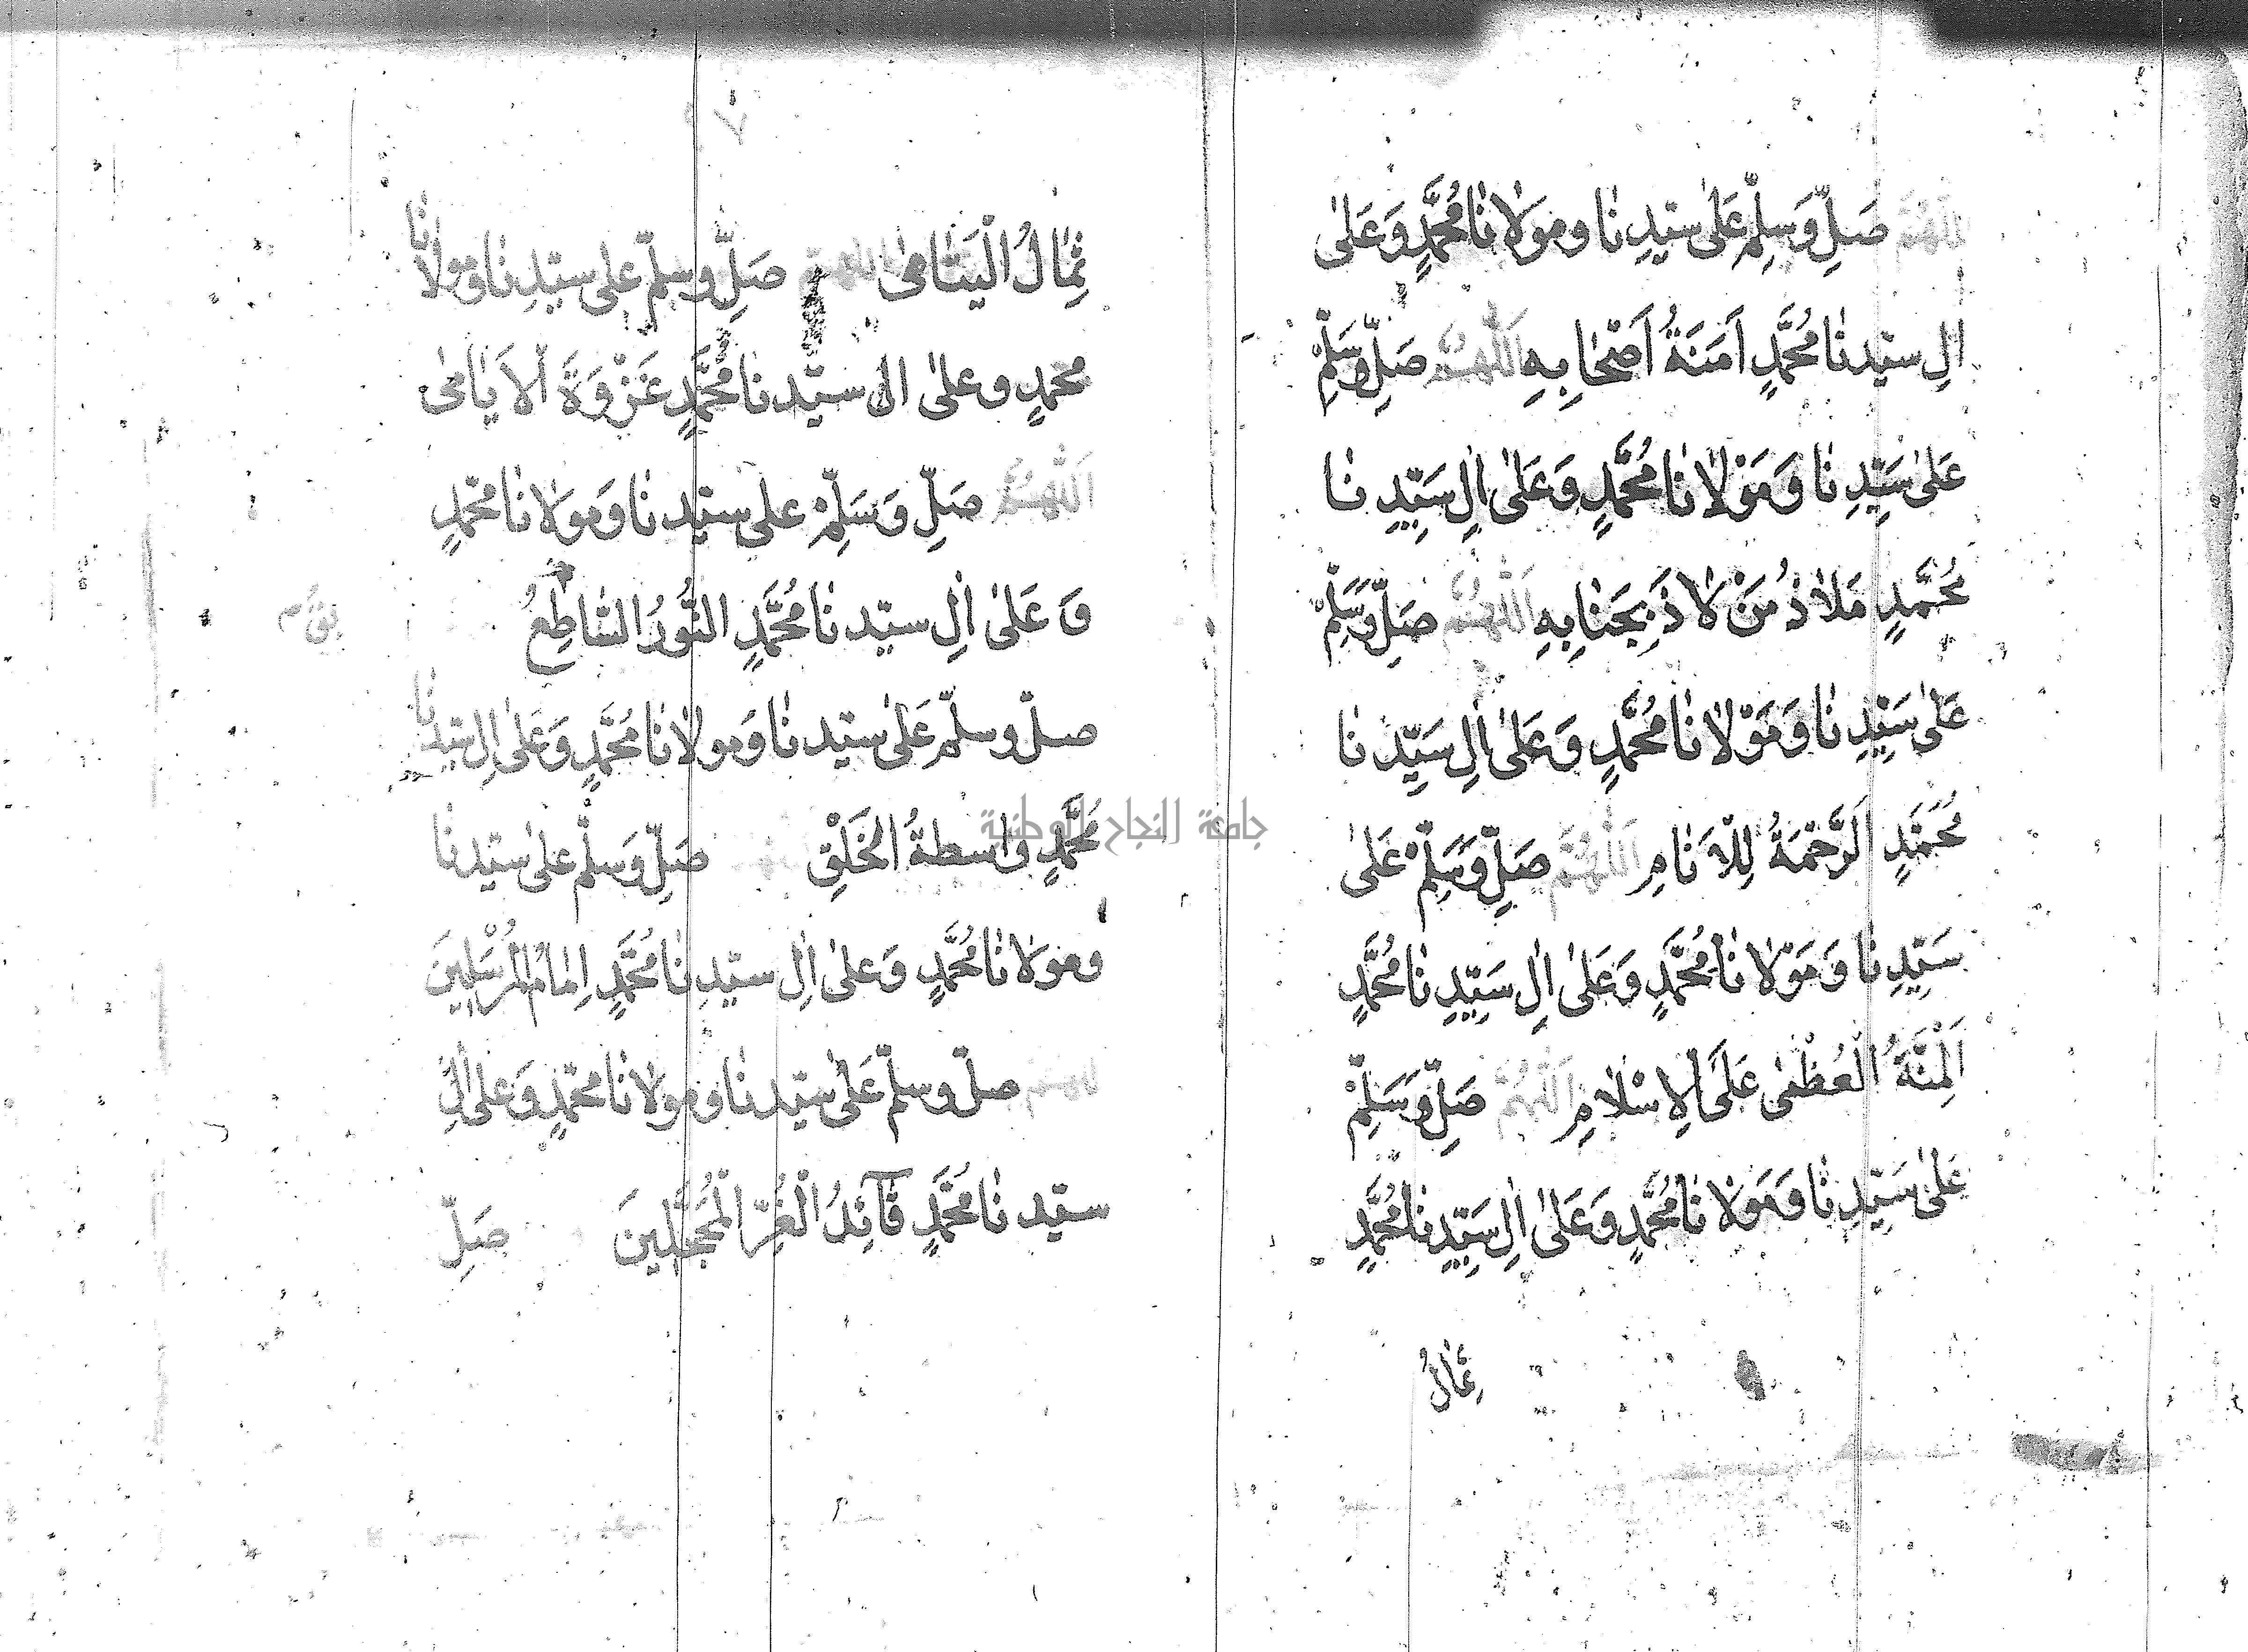 اللهم صَلِّ وَسَلِّمْ عَلىٰ سيّدِنا ومَولانا مُحَمَّدٍ وَعَلىٰ
اٰلِ سيّدنا مُحَمَّدٍ اَمَنَةُ اَصْحَابِهِ اَللّٰهُمَّ صَلِّ وَسَلِّمْ
عَلىٰ سَيِّدِنا وَمَوْلانا مُحَمَّدٍ وَعَلىٰ اٰلِ سَيِّدِنا
مُحَمَّدٍ مَلاذُ مَنْ لاذَ بِجَنابِهِ اَللّٰهُمَّ صَلِّ وَسَلِّمْ
عَلىٰ سَيِّدِنا وَمَوْلانا مُحَمَّدٍ وَعَلىٰ اٰلِ سَيِّدِنا
مُحَمَّدٍ اَلرَّحْمَةُ لِلْاَنامِ اَللّٰهُمَّ صَلِّ وَسَلِّمْ عَلىٰ
سَيِّدِنا وَمَوْلانا مُحَمَّدٍ وَعَلىٰ اٰلِ سَيِّدِنا مُحَمَّدٍ
اَلْمِنَّةُ الْعُظْمىٰ عَلَى الْاِسْلامِ اَللّٰهُمَّ صَلِّ وَسَلِّمْ
عَلىٰ سَيِّدِنا وَمَوْلانا مُحَمَّدٍ وَعَلىٰ اٰلِ سَيِّدِنا مُحَمَّدٍ
ثِمَالُ
ثِمَالُ الْيَتَامىٰ اللهم صَلِّ وسلّم على سيّدِنا ومولانا
محمّدٍ وعلىٰ ال سيّدنا مُحَمَّدٍ عَزْوَةَ الْاَيامىٰ
اَللّٰهُمَّ صَلِّ وَسَلِّمْ على سيّدنا وَمَولانا محمّدٍ
وَعَلىٰ اٰلِ سيّدنا مُحَمَّدٍ النُّورُ السَّاطِعُ
صلّ وسلّم عَلىٰ سيّدنا وَمولانا مُحَمَّدٍ وَعَلىٰ اٰلِ سيّدنا
مُحَمَّدٍ وَاسطةُ الْخَلْقِ صَلِّ وَسلّم علىٰ سيّدنا
ومَولانا مُحَمَّدٍ وَعلىٰ اٰلِ سيّدِنا مُحَمَّدٍ اِمَامُ الْمُرْسَلِينَ
صلّ وسلّم عَلىٰ سيّدنا ومولانا محمّدٍ وَعلىٰ اٰلِ
سيّدنا مُحَمَّدٍ قَآئِدُ الْغُرِّ الْمُحَجَّلِينَ صَلِّ
جامعة النجاح الوطنية